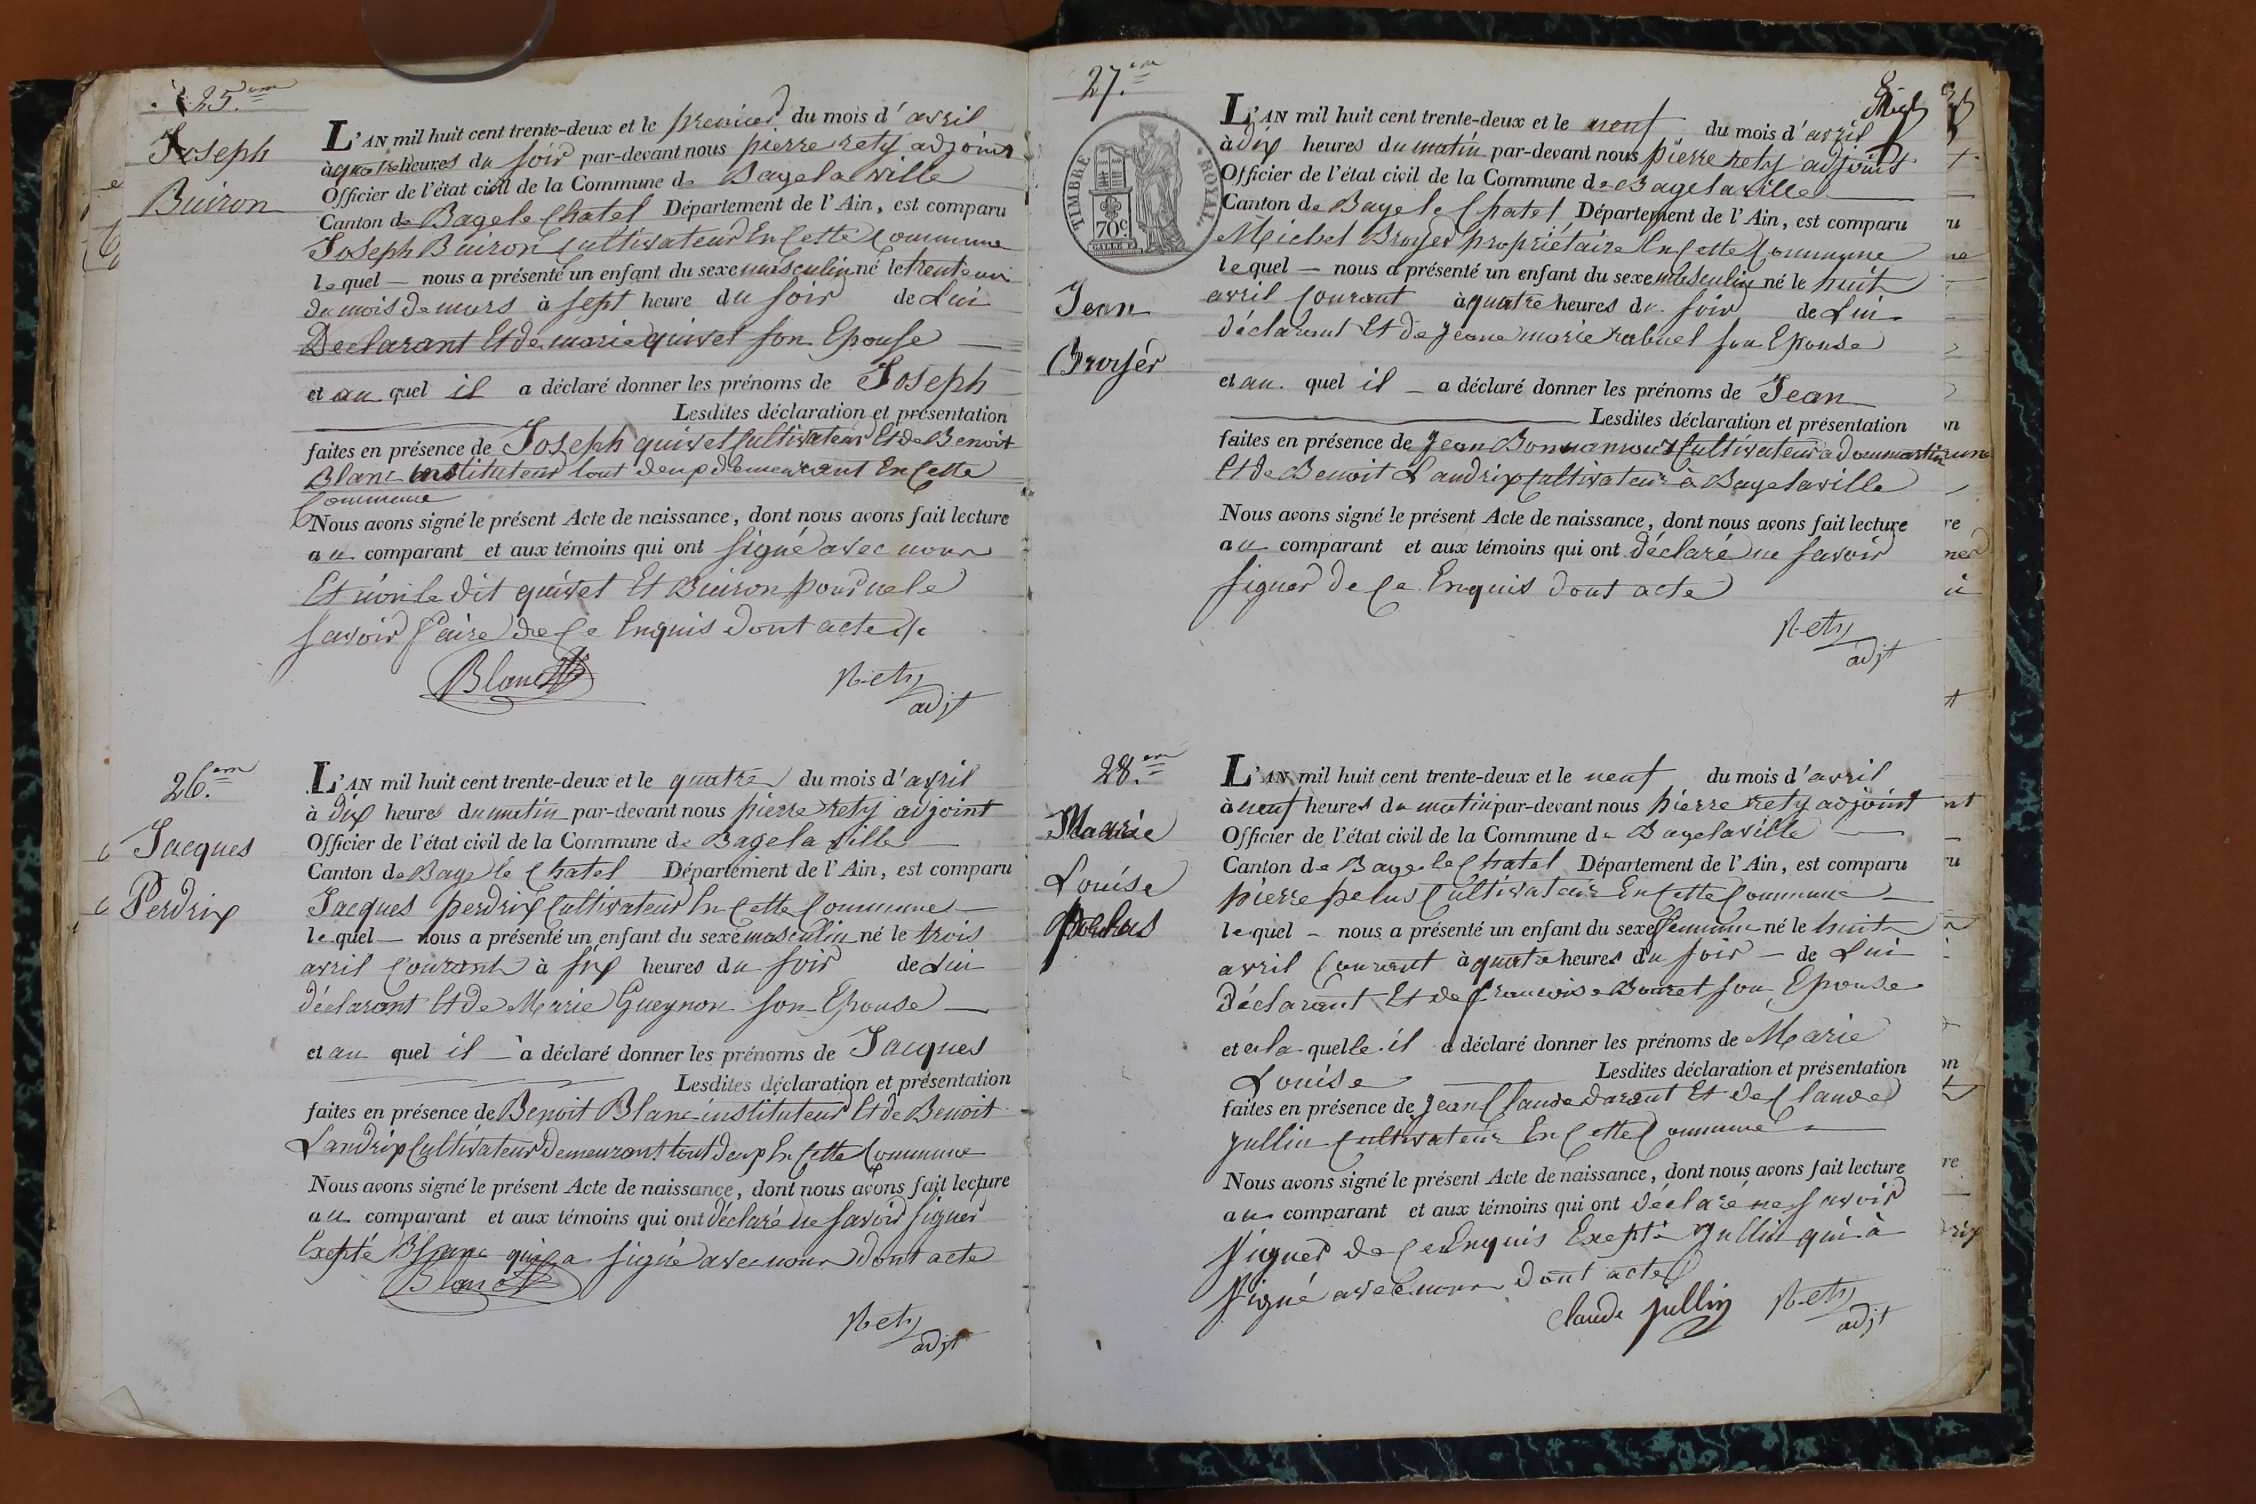 25.em
Joseph
Buiron
L'AN mil huit cent trente-deux et le premier du mois d'avril
à quatre heures du soir par-devant nous pierre rety adjoint
Officier de l'état civil de la Commune de Bagelaville
Canton de Bagele Chatel Département de l'Ain, est comparu
Joseph Buiron Cultivateur En Cette Commune
lequel — nous a présenté un enfant du sexe masculin né le trente un
du mois de mars à sept heure du soir de Lui
Declarant Et de marie quivet son Epouse —
et au quel il a déclaré donner les prénoms de Joseph
Lesdites déclaration et présentation
faites en présence de Joseph quivet Cultivateur Et de Benoit
Blanc instituteur tout deux demeurant En Cette
Commune
Nous avons signé le présent Acte de naissance, dont nous avons fait lecture
au comparant et aux témoins qui ont signé avec nous
Et non le dit quivet Et Buiron pour ne le
savoir faire de Ce Enquis dont acte
Blanc
Rety
adjt
26.em
Jacques
Perdrix
L'AN mil huit cent trente-deux et le quatre du mois d'avril
à dix heures du matin par-devant nous pierre rety adjoint
Officier de l'état civil de la Commune de Bagelaville
Canton de Bage le Chatel Département de l'Ain, est comparu
Jacques perdrix Cultivateur En Cette Commune —
lequel — nous a présenté un enfant du sexe masculin né le trois
avril Courant à six heures du soir de Lui
déclarant Et de Marie Gueynon son Epouse —
et au quel il — a déclaré donner les prénoms de Jacques
Lesdites déclaration et présentation
faites en présence de Benoit Blanc instituteur Et de Benoit
Landrix Cultivateur Demeurant tout deux En Cette Commune
Nous avons signé le présent Acte de naissance, dont nous avons fait lecture
au comparant et aux témoins qui ont déclaré ne savoir signer
Excepté Blanc qui a signé avec nous dont acte
Blanc
Rety
adjt
27.em
TIMBRE ROYAL
70c
Jean
Broyer
L'AN mil huit cent trente-deux et le neuf du mois d'avril
à dix heures du matin par-devant nous pierre rety adjoint
Officier de l'état civil de la Commune de Bagelaville
Canton de Bage le Chatel Département de l'Ain, est comparu
Michel Broyer propriétaire En Cette Commune
lequel — nous a présenté un enfant du sexe masculin né le huit
avril Courant à quatre heures du soir de Lui
déclarant Et de Jeane marie rabuel son Epouse
et au quel il — a déclaré donner les prénoms de Jean
Lesdites déclaration et présentation
faites en présence de Jean Cultivateur a dommartin
Et de Benoit Landrix Cultivateur à Bagelaville
Nous avons signé le présent Acte de naissance, dont nous avons fait lecture
au comparant et aux témoins qui ont déclaré ne savoir
signer de Ce Enquis dont acte
Rety
adjt
28.em
Marie
Louise
pelus
L'AN mil huit cent trente-deux et le neuf du mois d'avril
à neuf heures du matin par-devant nous pierre rety adjoint
Officier de l'état civil de la Commune de Bagelaville
Canton de Bage le Chatel Département de l'Ain, est comparu
pierre pelus Cultivateur En Cette Commune —
lequel — nous a présenté un enfant du sexe feminin né le huit
avril Courant à quatre heures du soir — de Lui
Déclarant Et de francoise Bouret son Epouse
et a la quelle il a déclaré donner les prénoms de Marie
Louise Lesdites déclaration et présentation
faites en présence de Jean Claude darant Et de Claude
jullin Cultivateur En Cette Commune
Nous avons signé le présent Acte de naissance, dont nous avons fait lecture
au comparant et aux témoins qui ont déclaré ne savoir
signer de Ce Enquis Excepté jullin qui à
signé avec nous dont acte
claude jullin
Rety
adjt